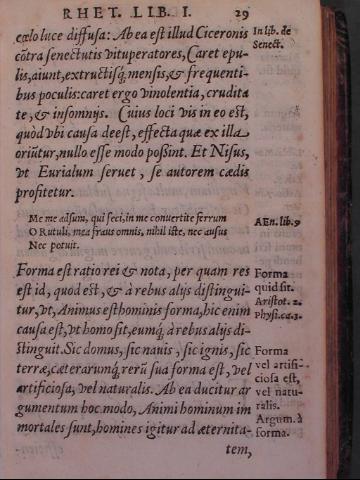 RHET. LIB. I. 29
cœlo luce diffusa: Ab ea est illud Ciceronis
In lib. de
cõtra senectutis vituperatores, Caret epu-
Senect.
lis, aiunt, extructisq́; mensis, & frequenti-
bus poculis: caret ergo vinolentia, crudita
te, & insomnijs. Cuius loci vis in eo est,
quòd vbi causa deest, effecta quæ ex illa
oriũtur, nullo esse modo possint. Et Nisus,
vt Eurialum seruet, se autorem cædis
profitetur.
Me me adsum, qui feci, in me conuertite ferrum
AEn. lib. 9
O Rutuli, mea fraus omnis, nihil iste, nec ausus
Nec potuit.
Forma est ratio rei & nota, per quam res
Forma
est id, quod est, & à rebus alijs distingui-
quid sit.
tur, vt, Animus est hominis forma, hic enim
Aristot. 2.
causa est, vt homo sit, eumq́; à rebus alijs di-
Physi. ca. 3.
stinguit. Sic domus, sic nauis, sic ignis, sic
Forma
terræ, cæterarumq́; rerũ sua forma est, vel
vel artifi-
artificiosa, vel naturalis. Ab ea ducitur ar
ciosa est,
vel natu-
gumentum hoc modo, Animi hominum im
ralis.
Argum. à
mortales sunt, homines igitur ad æternita-
forma.
tem,